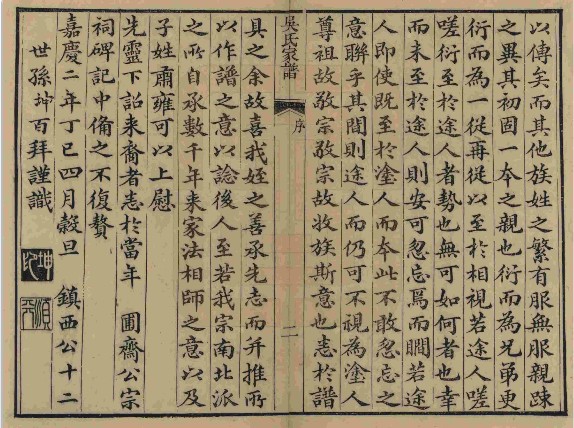 以傳矣而其他族姓之繁有服無服親疎
之異其初固一本之親也衍而為兄弟更
衍而為一從再從以至於相視若途人嗟
嗟衍至於途人者勢也無可如何者也幸
而未至於途人則安可忽忘焉而瞷若途
人即使既至於塗人而本此不敢忽忘之
意聯乎其間則途人而仍可不視為塗人
尊祖故敬宗敬宗故收族斯意也悉於譜
吳氏家譜
序
二
具之余故喜我姪之善承先志而并推所
以作譜之意以諗後人至若我宗南北派
之所自承數千年来家法相師之意以及
子姓肅雍可以上慰
先靈下詒来裔者志於當年 圃齋公宗
祠碑記中備之不復贅
嘉慶二年丁巳四月穀旦 鎮西公十二
世孫坤百拜謹識
坤
印
順